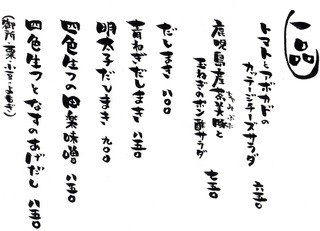 一品
トマトとアボカドの
カッテージチーズサラダ 六五〇
鹿児島産茶美豚と
ちゃーみーとん
玉ねぎのポン酢サラダ 七五〇
だしまき 八〇〇
青ねぎだしまき 八五〇
明太子だしまき 九〇〇
四色生ふの田楽味噌 八五〇
四色生ふとなすのあげだし 八五〇